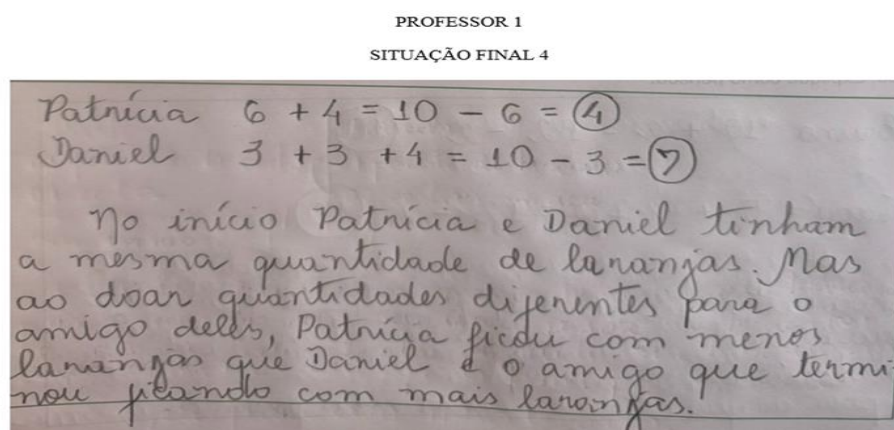 PROFESSOR 1
SITUAÇÃO FINAL 4
Patrícia 6 + 4 = 10 - 6 = 4
Daniel 3 + 3 + 4 = 10 - 3 = 7
No início Patrícia e Daniel tinham
a mesma quantidade de laranjas. Mas
ao doar quantidades diferentes para o
amigo deles, Patrícia ficou com menos
laranjas que Daniel e o amigo que termi
nou ficando com mais laranjas.